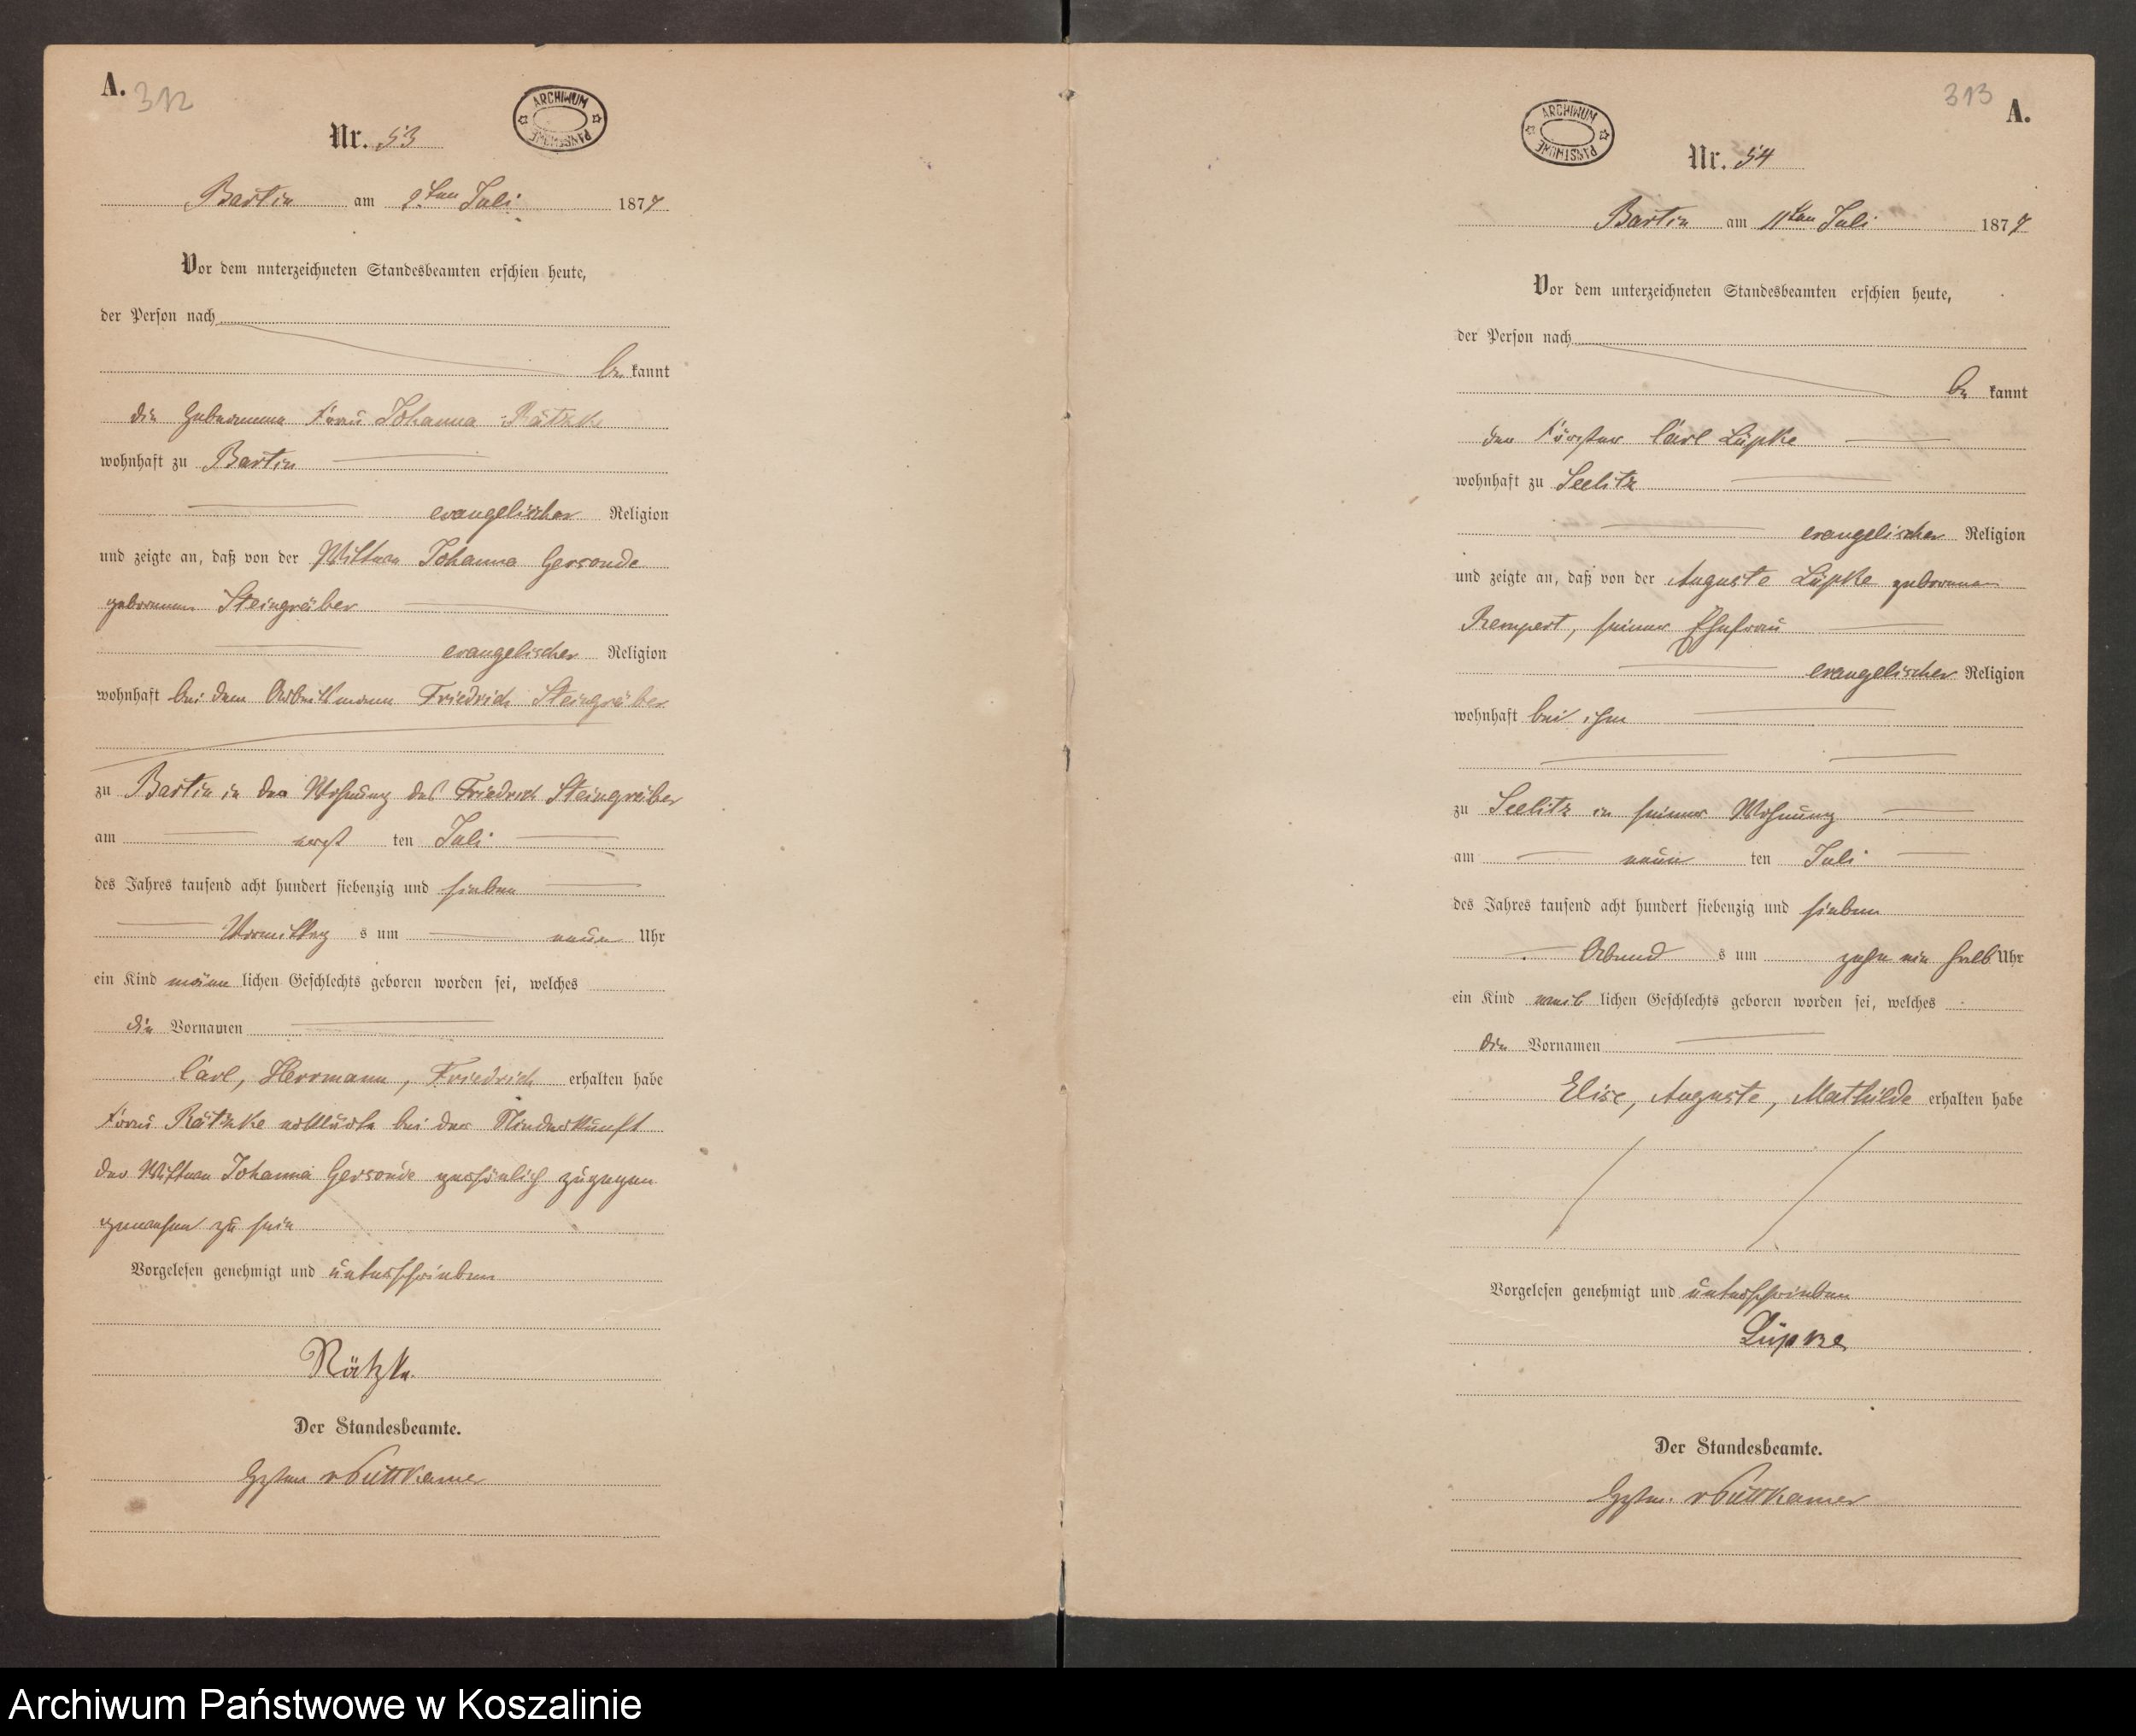 A. 312
ARCHIWUM PAŃSTWOWE
Nr. 53
Bartin am 2ten Juli 1877
Vor dem unterzeichneten Standesbeamten erschien heute,
der Person nach
be kannt
die Hebeamme Frau Johanna Rätzke
wohnhaft zu Bartin
evangelischer Religion
und zeigte an, daß von der Wittwe Johanna Gersonde
geborenen Steingräber
evangelischer Religion
wohnhaft bei dem Arbeitsmann Friedrich Steingräber
zu Bartin in der Wohnung des Friedrich Steingräber
am ten Juli
des Jahres tausend acht hundert siebenzig und sieben
Vormittag s um neun Uhr
ein Kind männ lichen Geschlechts geboren worden sei, welches
die Vornamen
Carl, Herrmann, Friedrich erhalten habe
Frau Rätzke erklärte bei der Niederkunft
der Wittwe Johanna Gersonde persönlich zugegen
gewesen zu sein
Vorgelesen genehmigt und unterschrieben
Rätzke.
Der Standesbeamte.
v Puttkamer
313 A.
ARCHIWUM PAŃSTWOWE
Nr. 54
Bartin am 11ten Juli 1877
Vor dem unterzeichneten Standesbeamten erschien heute,
der Person nach
be kannt
der Förster Carl Lüpke
wohnhaft zu Seelitz
evangelischer Religion
und zeigte an, daß von der Auguste Lüpke geborenen
Rempert, seiner Ehefrau
evangelischer Religion
wohnhaft bei ihm
zu Seelitz in seiner Wohnung
am neun ten Juli
des Jahres tausend acht hundert siebenzig und sieben
Abend s um zehn ein halb Uhr
ein Kind weib lichen Geschlechts geboren worden sei, welches
die Vornamen
Elise, Auguste, Mathilde erhalten habe
Vorgelesen genehmigt und unterschrieben
Lüpke
Der Standesbeamte.
v Puttkamer
Archiwum Państwowe w Koszalinie